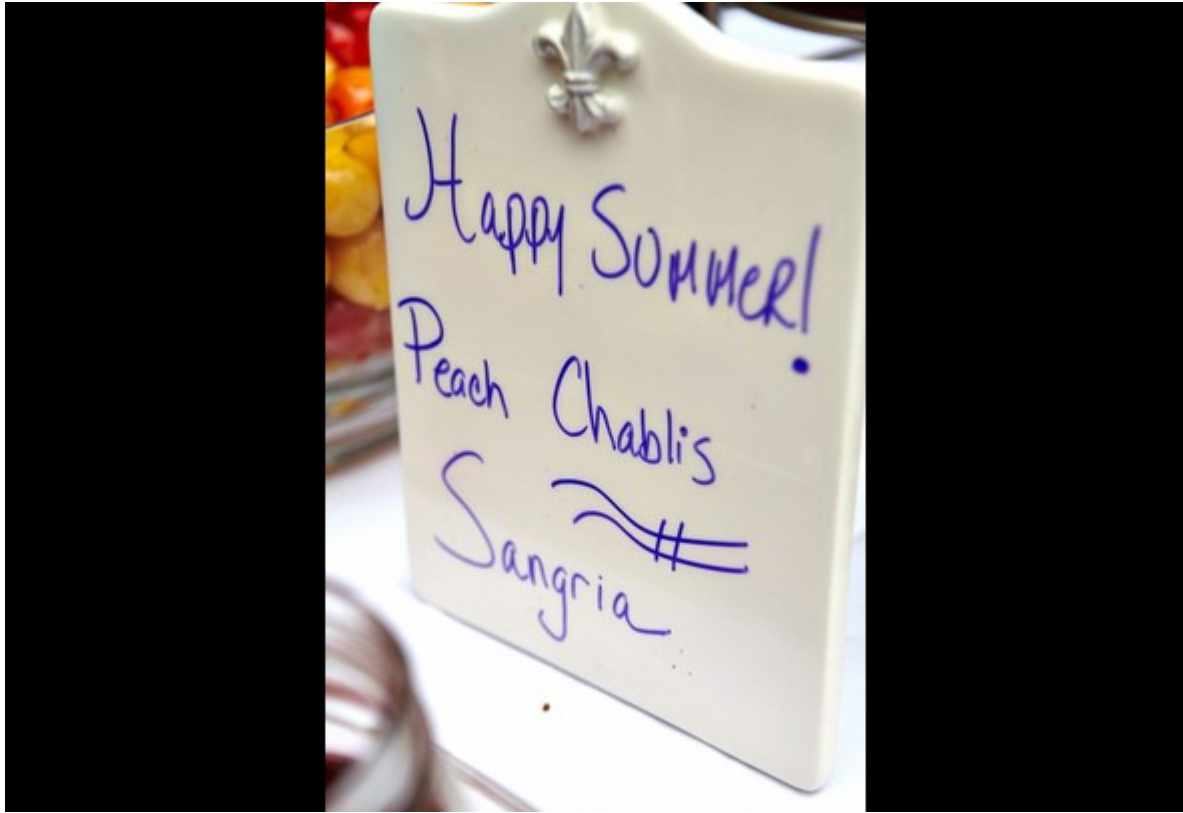 Happy Summer!
Peach Chablis
Sangria